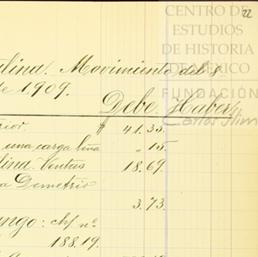 CENTRO DE
ESTUDIOS
DE HISTORIA
DE MÉXICO
FUNDACIÓN
Carlos Slim
22
lina. Movimiento del 8
de 1909.
Debe. Haber.
rior $ 41.33.
una carga leña " 15.
lina. Ventas 18.69.
a Demetrio
3.73.
ngo: chf nº
188.19.